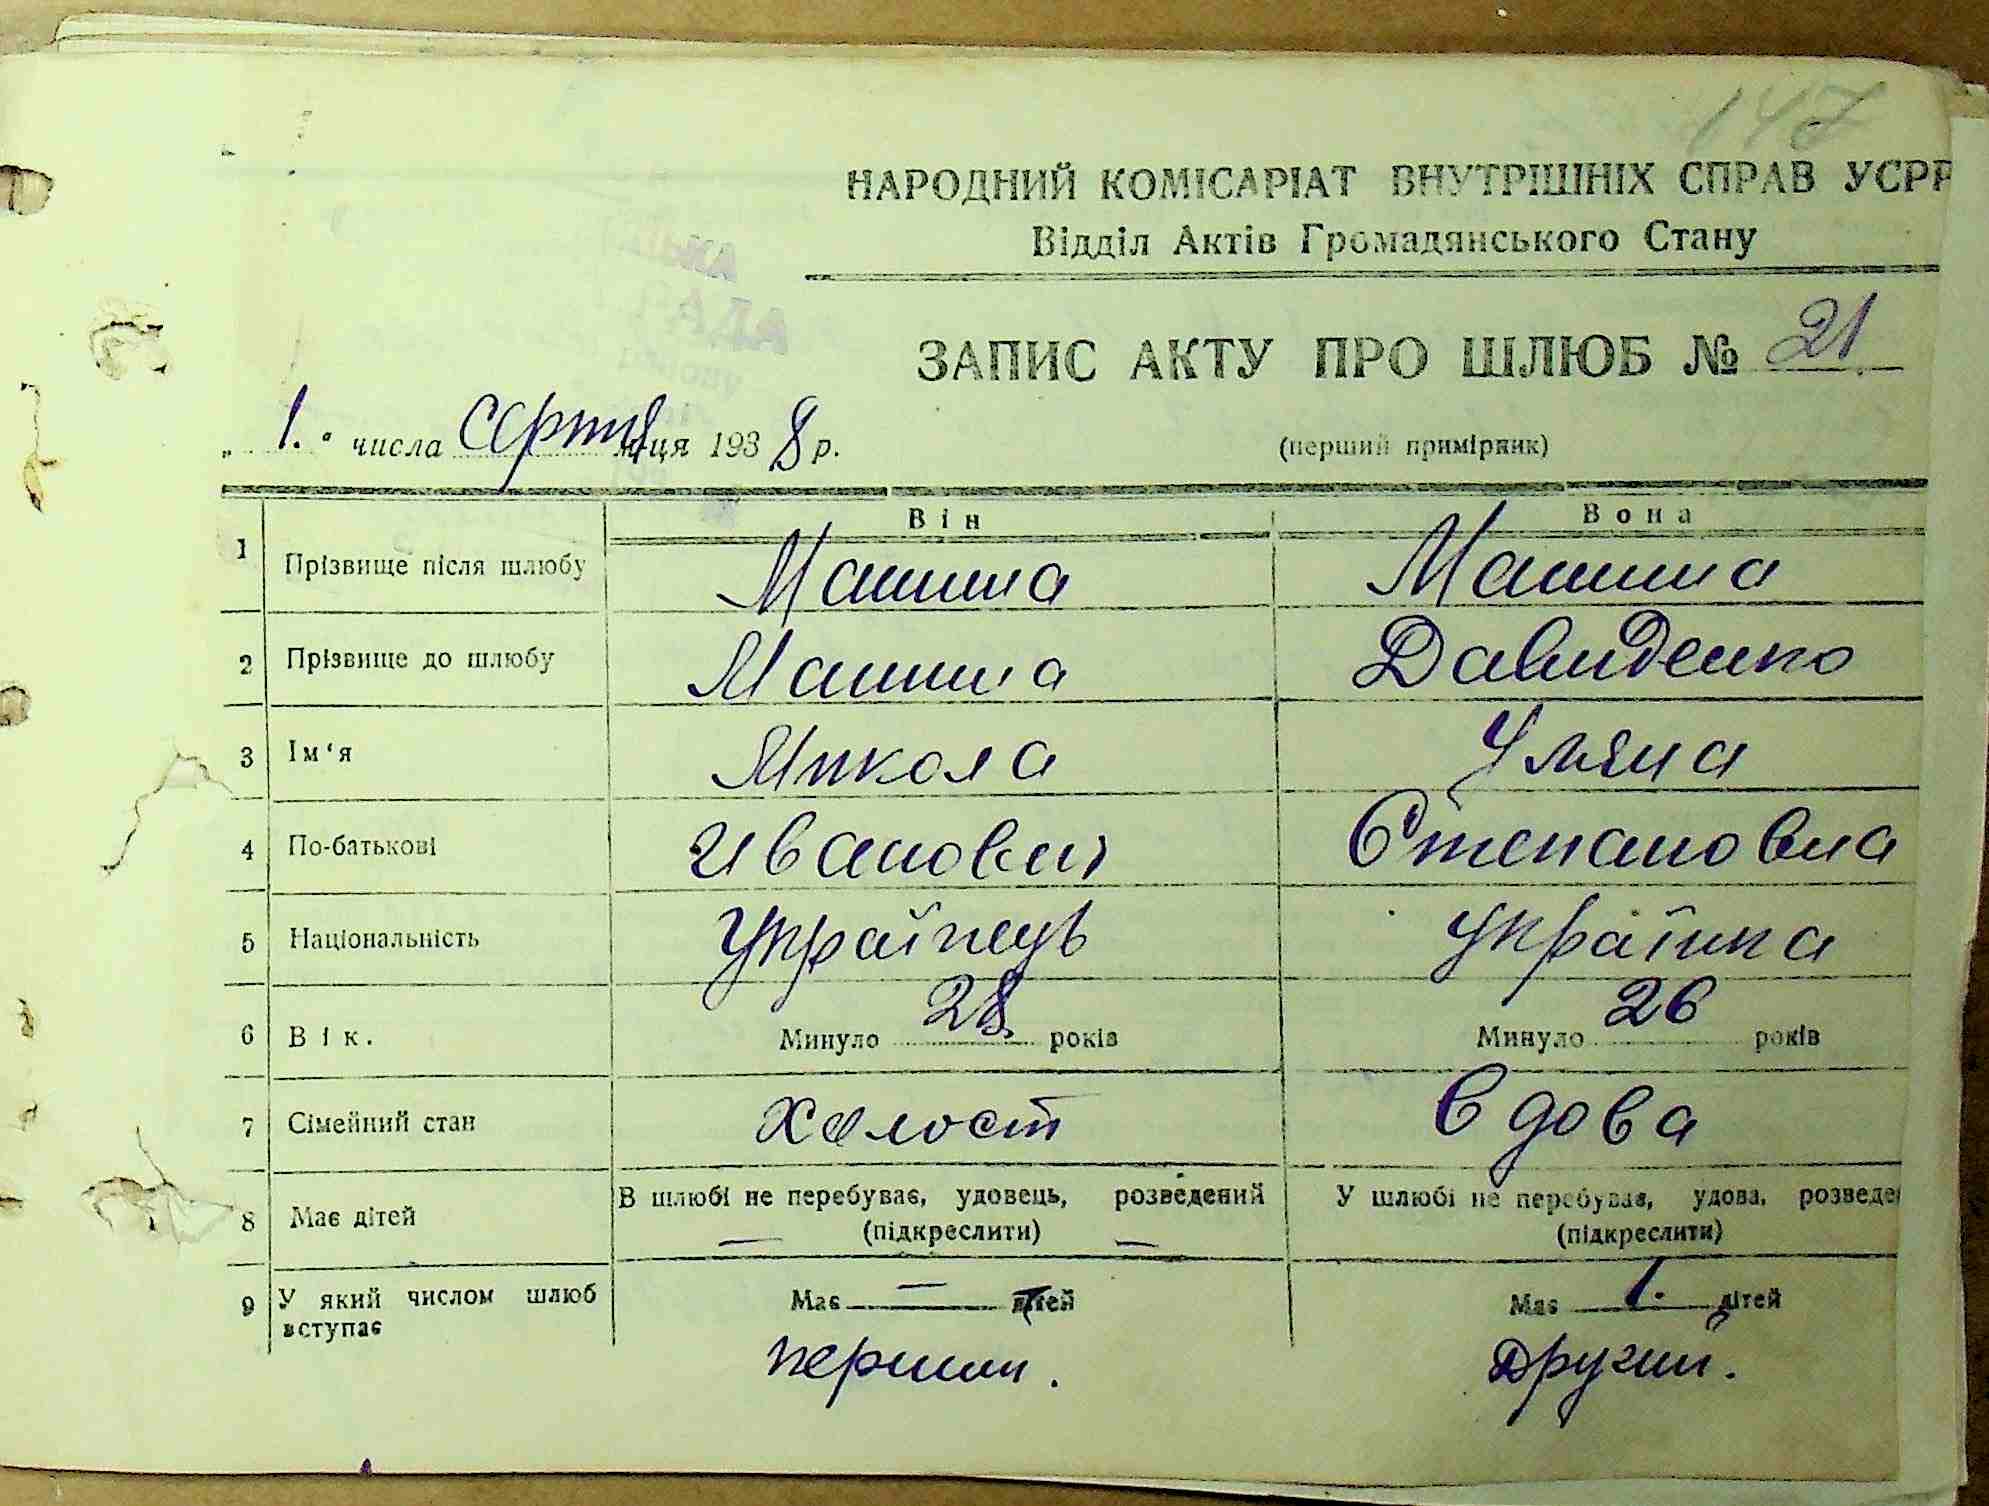 147
НАРОДНИЙ КОМІСАРІАТ ВНУТРІШНІХ СПРАВ УСРР
Відділ Актів Громадянського Стану
ЗАПИС АКТУ ПРО ШЛЮБ № 21
„ 1. “ числа серпня м-ця 1938 р. (перший примірник)
Він Вона
1 Прізвище після шлюбу Машина Машина
2 Прізвище до шлюбу Машина Давиденко
3 Ім‘я Микола Уляна
4 По-батькові Иванович Степановна
5 Національність Українець Українка
6 Вік. Минуло 28 років Минуло 26 років
7 Сімейний стан холост вдова
8 Має дітей В шлюбі не перебуває, удовець, розведений У шлюбі не перебуває, удова, розведе
(підкреслити) (підкреслити)
9 У який числом шлюб Має — дітей Має 1. дітей
вступає
першим. Другий.